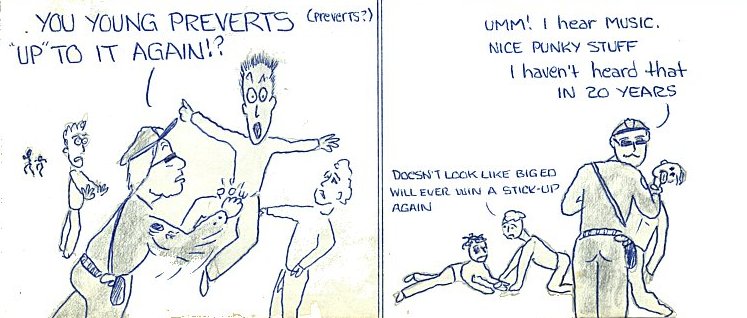 YOU YOUNG PREVERTS (PREVERTS?)
"UP" TO IT AGAIN!?
UMM! I hear MUSIC.
NICE PUNKY STUFF
I haven't heard that
IN 20 YEARS
DOESN'T LOOK LIKE BIG ED
WILL EVER WIN A STICK-UP
AGAIN